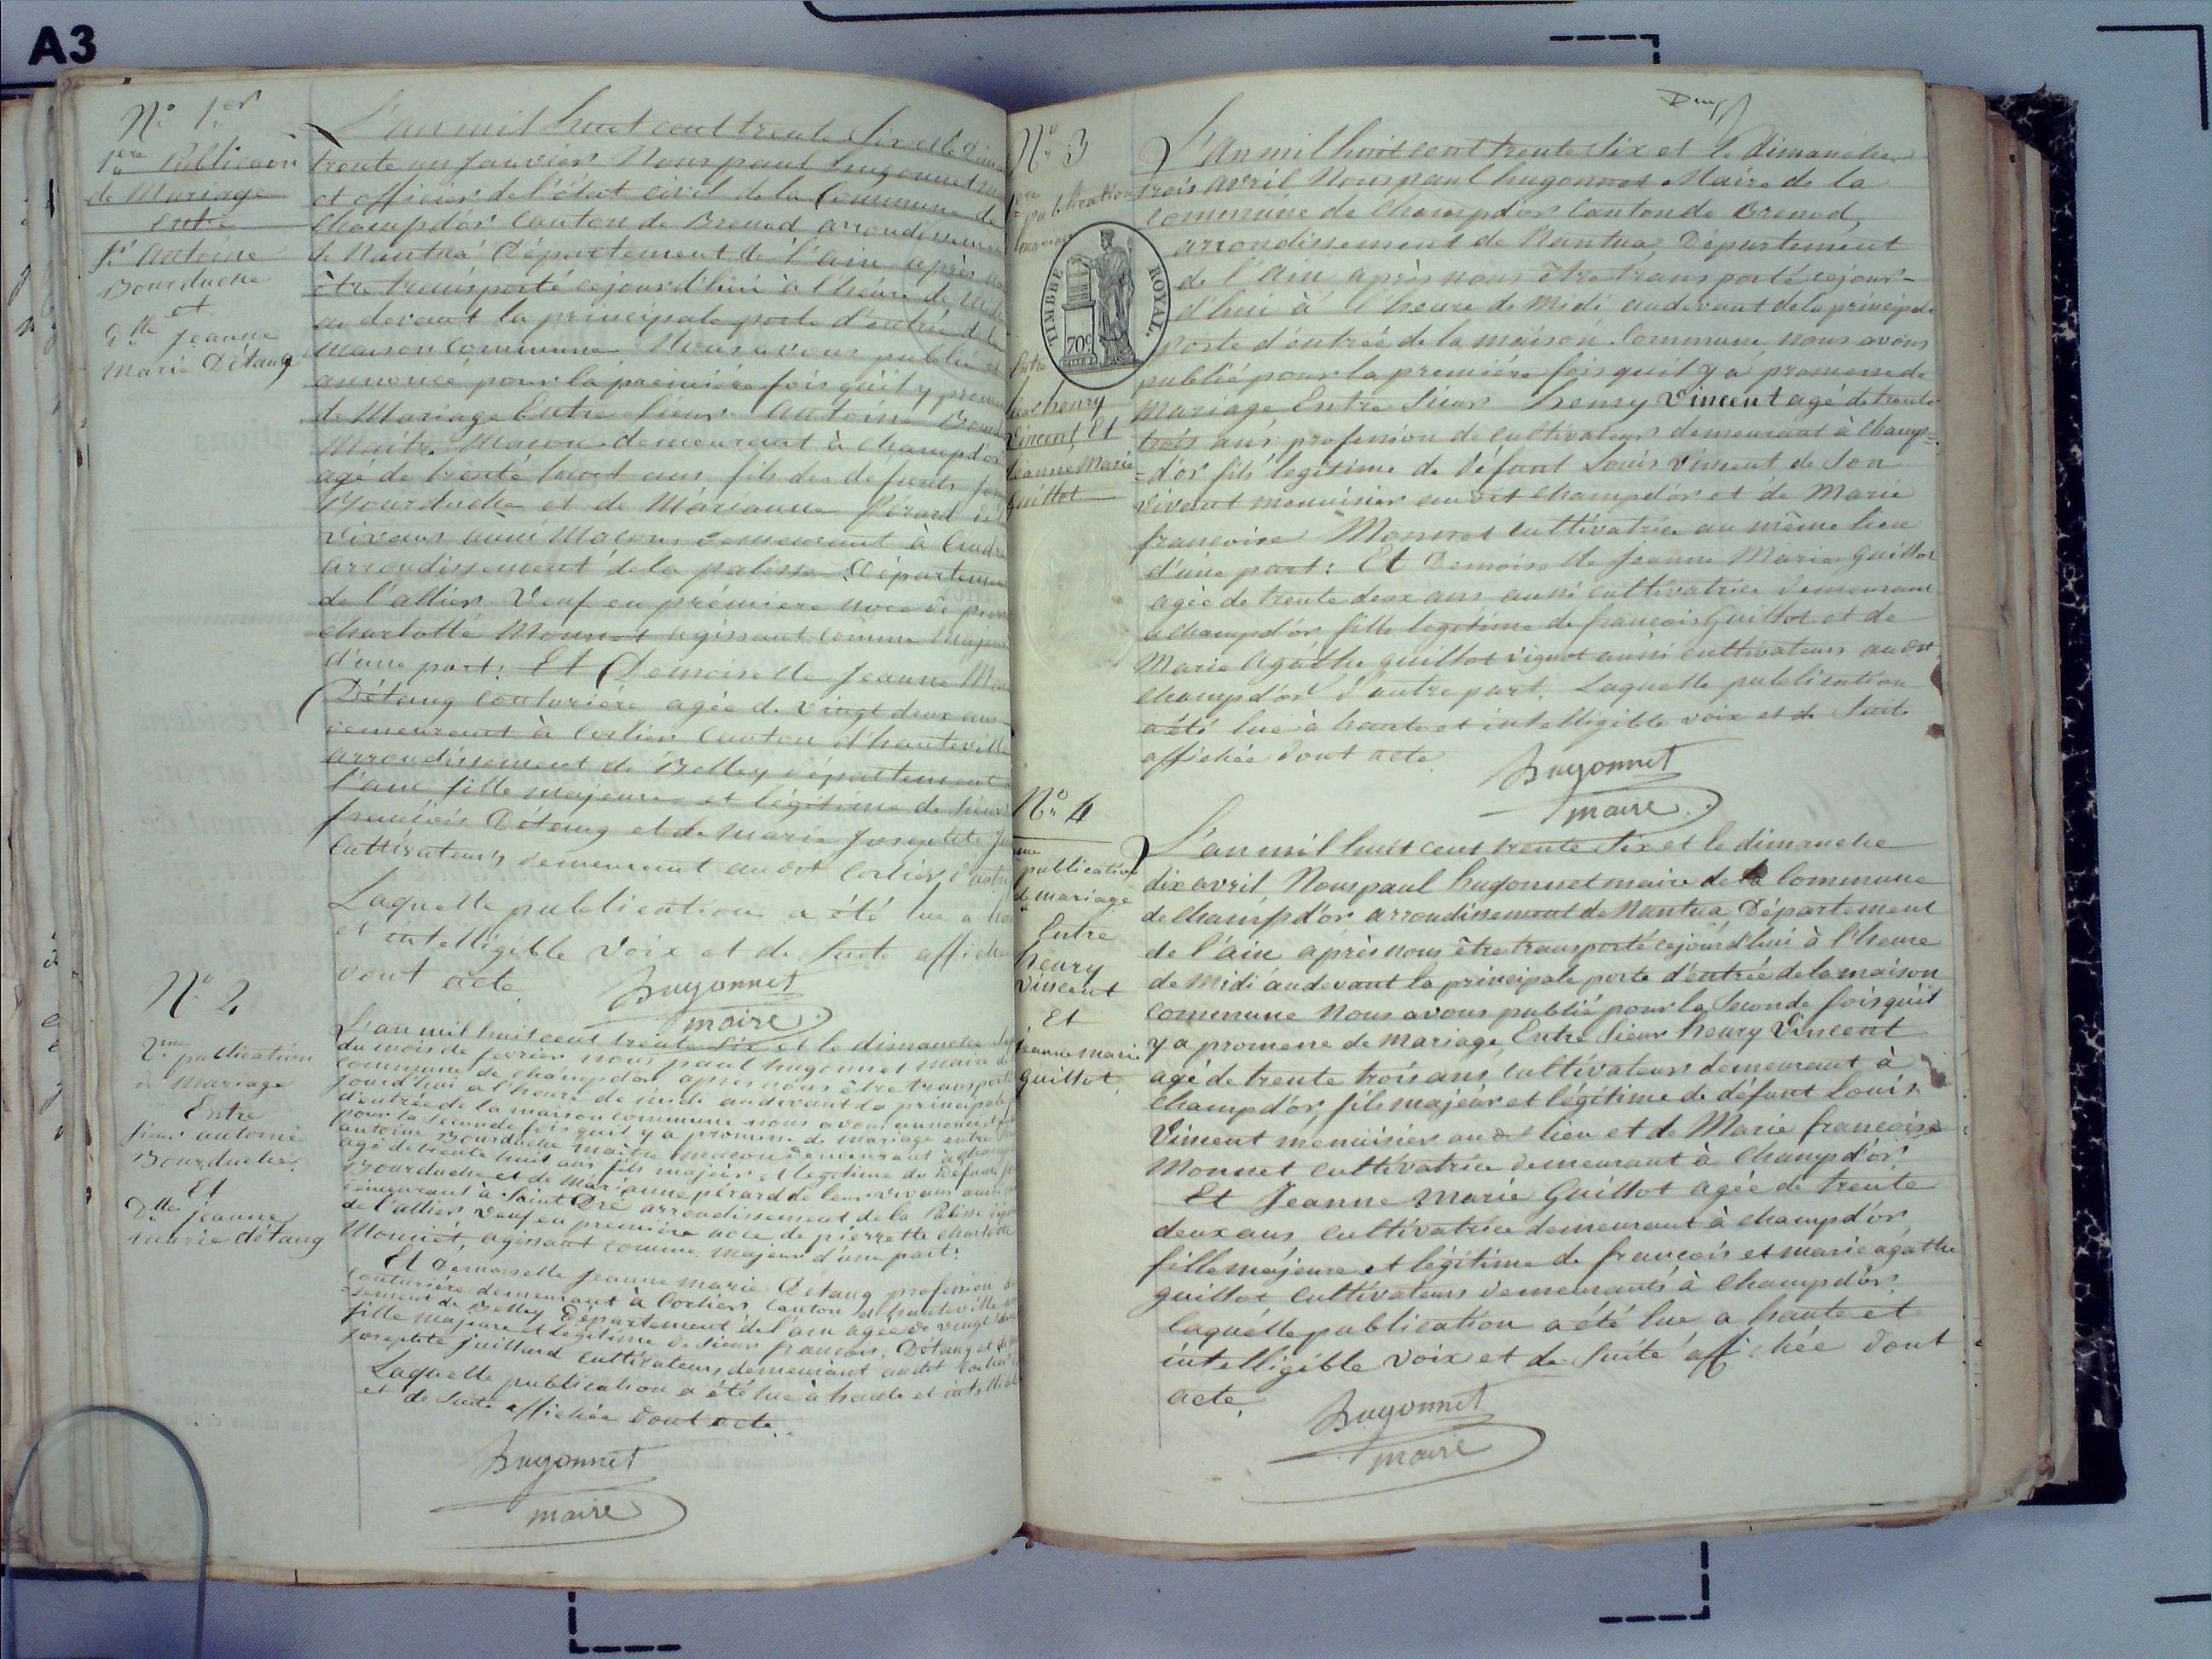 A3
N° 1er
1ère Publication
de Mariage
entre
Sr Antoine
Bourduche
et
Dlle Jeanne
Marie Détang
L'an mil huit cent trente Six et le Dim
trente un Janvier Nous paul hugonnet
et officier de l'état civil de la Commune de
Champdor Canton de Brenod arrondissement
de Nantua Département de l'ain après
être transporté cejourd'hui à l'heure de
au devant la principale porte d'entrée de la
maison Commune Nous avons publié et
annoncé pour la première fois qu'il y
de Mariage Entre Sieur Antoine
Maitre Macon demeurant à Champd'or
agé de trente huit ans fils des défunts
Bourduche et de Marianne Pérard
vivans aussi Macons demeurant à
arrondissement de la palisse Département
de l'allier Veuf en première noce de
charlotte Monnet agissant comme Majeur
d'une part: Et Demoiselle Jeanne
Détang couturière agée de vingt deux ans
demeurant à Corlier Canton d'hauteville
arrondissement de Belley Département
l'ain fille majeure et légitime de Sieur
francois Détang et de marie Josephte
Cultivateurs demeurant audit Corlier
Laquelle publication a été lue a
et intelligible voix et de Suite
dont acte.
hugonnet
maire
N° 2
2me publication
de mariage
Entre
Sieur antoine
Bourduche.
Et
Dlle jeanne
marie détang
L'an mil huit cent trente Six et le dimanche
du mois de fevrier nous paul hugonnet maire de
commune de champdor après nous être transporté
jourd'hui a l'heure de midi audevant la principale
d'entrée de la maison commune nous avons annoncé
pour la Seconde fois qu'il y a promesse de mariage entre
antoine Bourduche maitre macon demeurant à
agé de trente huit ans fils majeur et legitime de défunt
Bourduche et de Marianne pérard de leur vivans aussi
demeurant à Saint Dré arrondissement de la Palisse
de l'allier Veuf en première noce de pierrette charlotte
Monnet, agissant comme majeur d'une part:
Et demoiselle Jeanne marie Détang profession
couturière demeurant à Corlier Canton d'hauteville
=sement de Belley Département de l'ain agée de vingt
fille majeure et légitime de Sieur francois Détang et
Josephte juilliard cultivateurs demeurant audit
Laquelle publication a été lue à haute et
et de Suite affichée dont acte.
hugonnet
maire
N° 3
1ère
publication
mariage
TIMBRE ROYAL.
70c
Entre
henry
Vincent Et
Jeanne Marie
Guillot
L'An mil huit cent trente Six et le Dimanche
trois avril Nous paul hugonnet Maire de la
commune de Champdor Canton de Brenod,
arrondissement de Nantua, Département
de l'Ain après nous être transporté cejour=
d'hui à l'heure de Midi audevant de la principale
porte d'entrée de la maison Commune nous avons
publié pour la première fois qu'il y a promesse de
Mariage Entre Sieur henry Vincent agé de trente
trois ans profession de Cultivateur demeurant à Champ=
=d'or fils legitime de défunt Louis Vincent de Son
vivant menuisier audit Champdor et de Marie
francoise Monnet cultivatrice au même lieu
d'une part: Et Demoiselle Jeanne Marie Guillot
agée de trente deux ans aussi cultivatrice demeurant
a champd'or fille legitime de francois Guillot et de
Marie Agathe guillot vignot aussi cultivateurs audit
Champd'or D'autre part. Laquelle publication
a été lue à haute et intelligible voix et de Suite
affichée dont acte.
hugonnet
maire
N° 4
publication
de mariage
Entre
henry
Vincent
Et
jeanne marie
guillot
L'an mil huit cent trente Six et le dimanche
dix avril Nous paul hugonnet maire de la Commune
de Champd'or arrondissement de Nantua Département
de l'ain après nous être transporté cejourd'hui à l'heure
de midi audevant la principale porte d'entrée de la maison
commune Nous avons publié pour la Seconde fois qu'il
y a promesse de mariage, Entre Sieur henry Vincent
agé de trente trois ans Cultivateur demeurant à
Champd'or, fils majeur et légitime de défunt Louis
Vincent menuisier audit lieu et de Marie francoise
Monnet cultivatrice demeurant à Champd'or
Et Jeanne Marie Guillot agée de trente
deux ans cultivatrice demeurant à champd'or,
fille majeure et légitime de francois et marie agathe
guillot cultivateurs demeurants à Champd'or,
laquelle publication a été lue a haute et
intelligible voix et de Suite affichée dont
acte.
hugonnet
maire